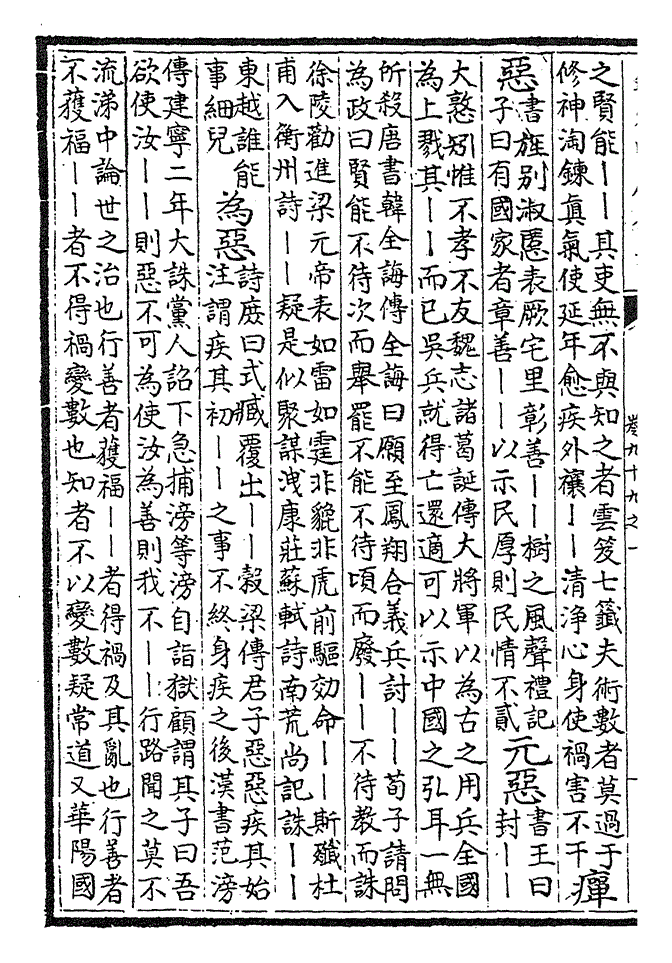 之賢能丨丨其吏無不與知之者雲笈七籤夫術數者莫過于
修神淘鍊真氣使延年愈疾外禳丨丨清浄心身使禍害不干
癉
惡
書旌别淑慝表厥宅里彰善丨丨樹之風聲禮記
子曰有國家者章善丨丨以示民厚則民情不貳
元惡
書王曰
封丨丨
大憝矧惟不孝不友魏志諸葛誕傳大將軍以為古之用兵全國
為上戮其丨丨而已吳兵就得亡還適可以示中國之弘耳一無
所殺唐書韓全誨傳全誨曰願至鳳翔合義兵討丨丨荀子請問
為政曰賢能不待次而舉罷不能不待頃而廢丨丨不待教而誅
徐陵勸進梁元帝表如雷如霆非貔非虎前驅効命丨丨斯殲杜
甫入衡州詩丨丨疑是似聚謀洩康莊蘇軾詩南荒尚記誅丨丨
東越誰能
事細兒
為惡
詩庶曰式臧覆出丨丨榖梁傳君子惡惡疾其始
注謂疾其初丨丨之事不終身疾之後漢書范滂
傳建寧二年大誅黨人詔下急捕滂等滂自詣獄顧謂其子曰吾
欲使汝丨丨則惡不可為使汝為善則我不丨丨行路聞之莫不
流涕中論世之治也行善者獲福丨丨者得禍及其亂也行善者
不獲福丨丨者不得禍變數也知者不以變數疑常道又華陽國
卷九十九之一